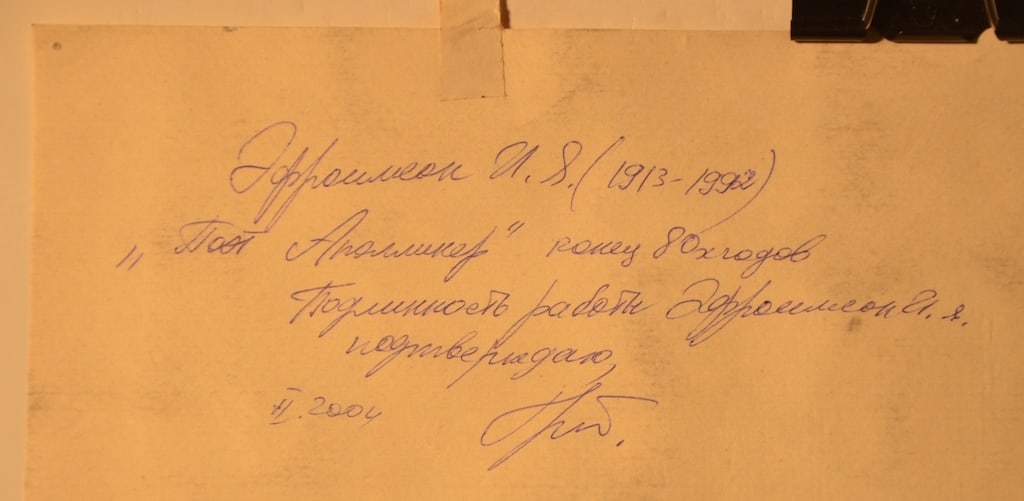 Эфроимсон И. Я. (1913-1992)
„Поэт Аполлинер" конец 80х годов
Подлинность работы Эфроимсон И. Я.
подтверждаю
II. 2004